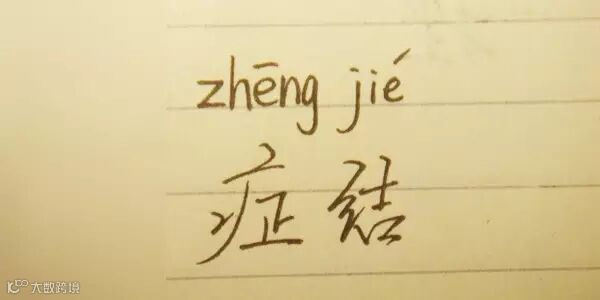 zhēng jié
症结
大数跨境